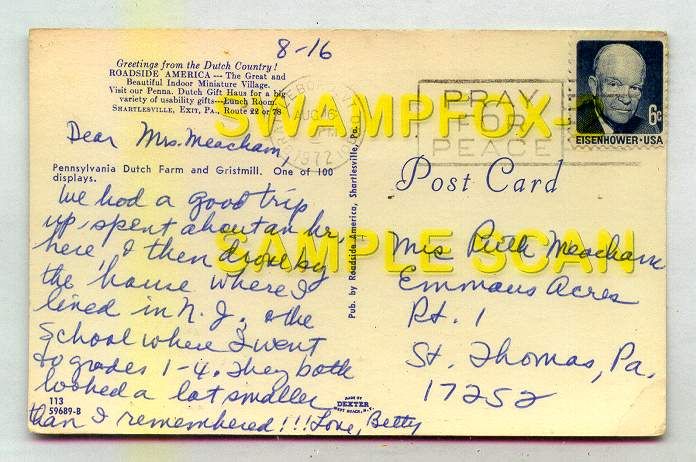 8-16
Greetings from the Dutch Country!
ROADSIDE AMERICA — The Great and
Beautiful Indoor Miniature Village.
Visit our Penna. Dutch Gift Haus for a big
variety of usability gifts—Lunch Room.
SHARTLESVILLE, EXIT, PA., Route 22 or 78
Dear Mrs. Meacham,
Pennsylvania Dutch Farm and Gristmill. One of 100
displays.
We had a good trip
up, spent about an hr.
here, I then drove by
the house where I
lived in N.J. & the
School where I went
to grades 1-4. They both
looked a lot smaller
than I remembered!!! Love, Betty
113
59689-B
MADE BY
DEXTER
WEST NYACK, N.Y.
Pub. by Roadside America, Shartlesville, Pa.
AUG 16
PM
1972
PRAY
FOR
PEACE
6c
EISENHOWER·USA
Post Card
Mrs Ruth Meacham
Emmaus Acres
Rt. 1
St. Thomas, Pa.
17252
SWAMPFOX-
SAMPLE SCAN